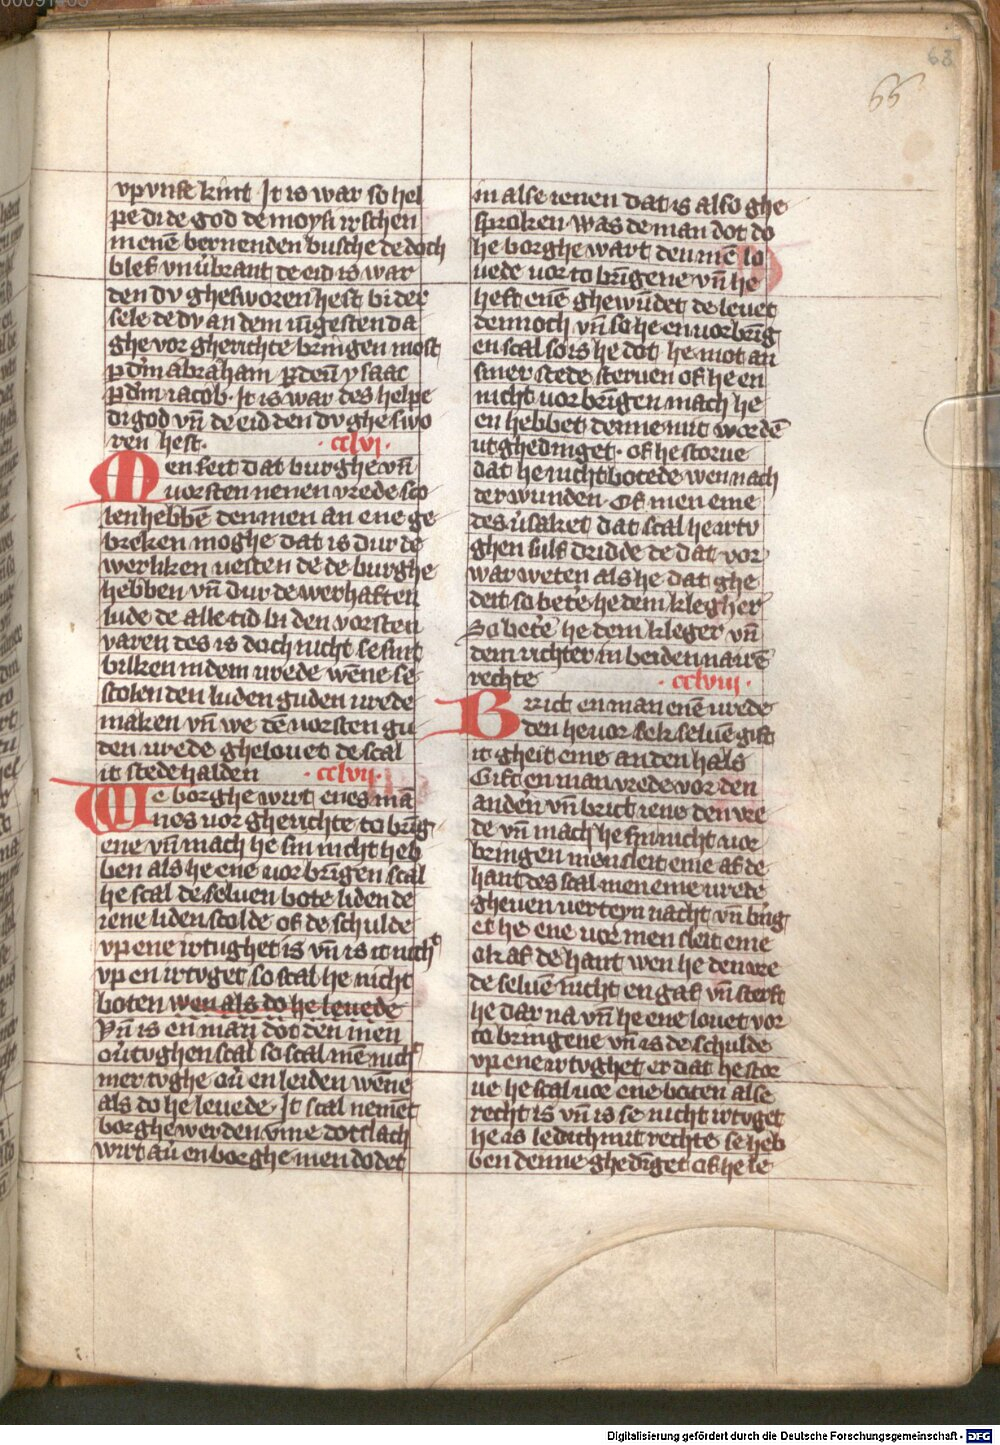 68
55
vp vnse kint It is war so hel
pe di de god de moysi irschen
in enē bernenden busche de doch
blef vnūbrant de eid is war
den dv ghesworen hest bi der
sele de dv an dem iūgesten da
ghe vor gherichte bringen most
p dm̄ abraham p deū ysaac
p dm̄ iacob. It is war des helpe
di god vn̄ de eid den dv ghe swo
ren hest. · cclvi ·
Men seit dat burghe vn̄
vorsten nenen vrede sco
len hebbē den men an ene ge
breken moghe dat is dur de
werliken vesten de de burghe
hebben vn̄ dur de werhaften
lude de alle tid bi den vorsten
varen des is doch nicht se sint
bilken in dem vrede wēne se
scolen den luden guden vrede
maken vn̄ we dē vorsten gu
den vrede ghelouet de scal
it stede halden · cclvii ·
We borghe wirt enes mā
nes vor gherichte to brīg
ene vn̄ mach he sin nicht heb
ben als he ene vorbrīgen scal
he scal de seluen bote liden de
iene liden scolde of de schulde
vp ene irtughet is vn̄ is it nicht
vp en irtvget so scal he nicht
boten wen als do he leuede
Vn̄ is en man dot den men
ou̇tvghen scal so scal mē nicht
mer tvghe ou̇ en leiden wēne
als do he leuede. It scal nemēt
borghe werden vm̄e dottlach
wirt au̇ en borghe men dodet
in alse ienen dat is also ghe
sproken was de man dot do
he borghe wart den mē lo
uede vor to brīgene vn̄ he
heft enē ghewūdet de leuet
dennoch vn̄ so he en vorbrīg
en scal so is he dot he mot an
siner stede steruen of he en
nicht vor brīgen mach he
en hebbet denne mit wordē
ut ghedinget. of he storue
dat he nicht botede wen nach
der wunden. Of men eme
des u̇saket dat scal he irtv
ghen sulf dridde de dat vor
war weten als he dat ghe
deit so bete he dem klegher
So bete he dem kleger vn̄
dem richter in beiden na irē
rechte · cclviii ·
Brict en man enē vrede
den he vor sek seluē gift
it gheit eme an den hals
Gift en man vrede vor den
anden vn̄ brict iene den vre
de vn̄ mach he sin nicht vor
bringen men sleit eme af de
hant des scal men eme vrede
gheuen verteyn nacht vn̄ brīg
et he ene vor men sleit eme
ok af de hant wen he den vre
de seluē nicht en gaf vn̄ sterft
he dar na vn̄ he ene louet vor
to bringene vn̄ is de schulde
vp ene irtvghet er dat he stor
ue he scal vor ene boten alse
recht is vn̄ is se nicht irtvget
he is ledich mit rechte se heb
ben denne ghedīget of he le
Digitalisierung gefördert durch die Deutsche Forschungsgemeinschaft - DFG